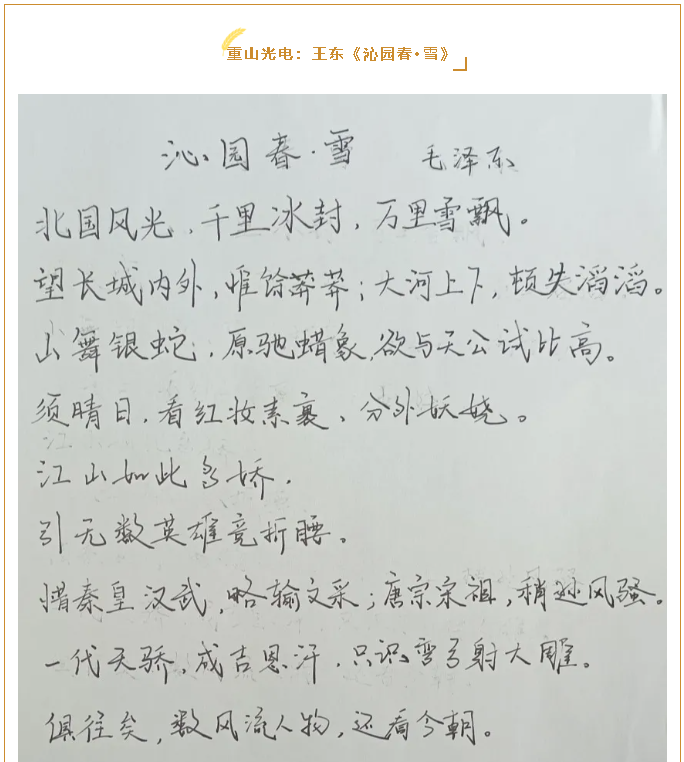 重山光电：王东《沁园春·雪》
沁园春·雪 毛泽东
北国风光，千里冰封，万里雪飘。
望长城内外，惟馀莽莽；大河上下，顿失滔滔。
山舞银蛇，原驰蜡象，欲与天公试比高。
须晴日，看红妆素裹、分外妖娆。
江山如此多娇，
引无数英雄竞折腰。
惜秦皇汉武，略输文采；唐宗宋祖，稍逊风骚。
一代天骄，成吉思汗，只识弯弓射大雕。
俱往矣，数风流人物，还看今朝。